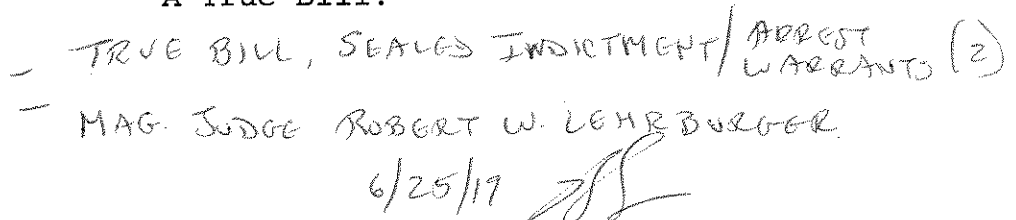 A True Bill.
- TRUE BILL, SEALED INDICTMENT/ARREST WARRANTS (2)
- MAG. JUDGE ROBERT W. LEHRBURGER.
6/25/19